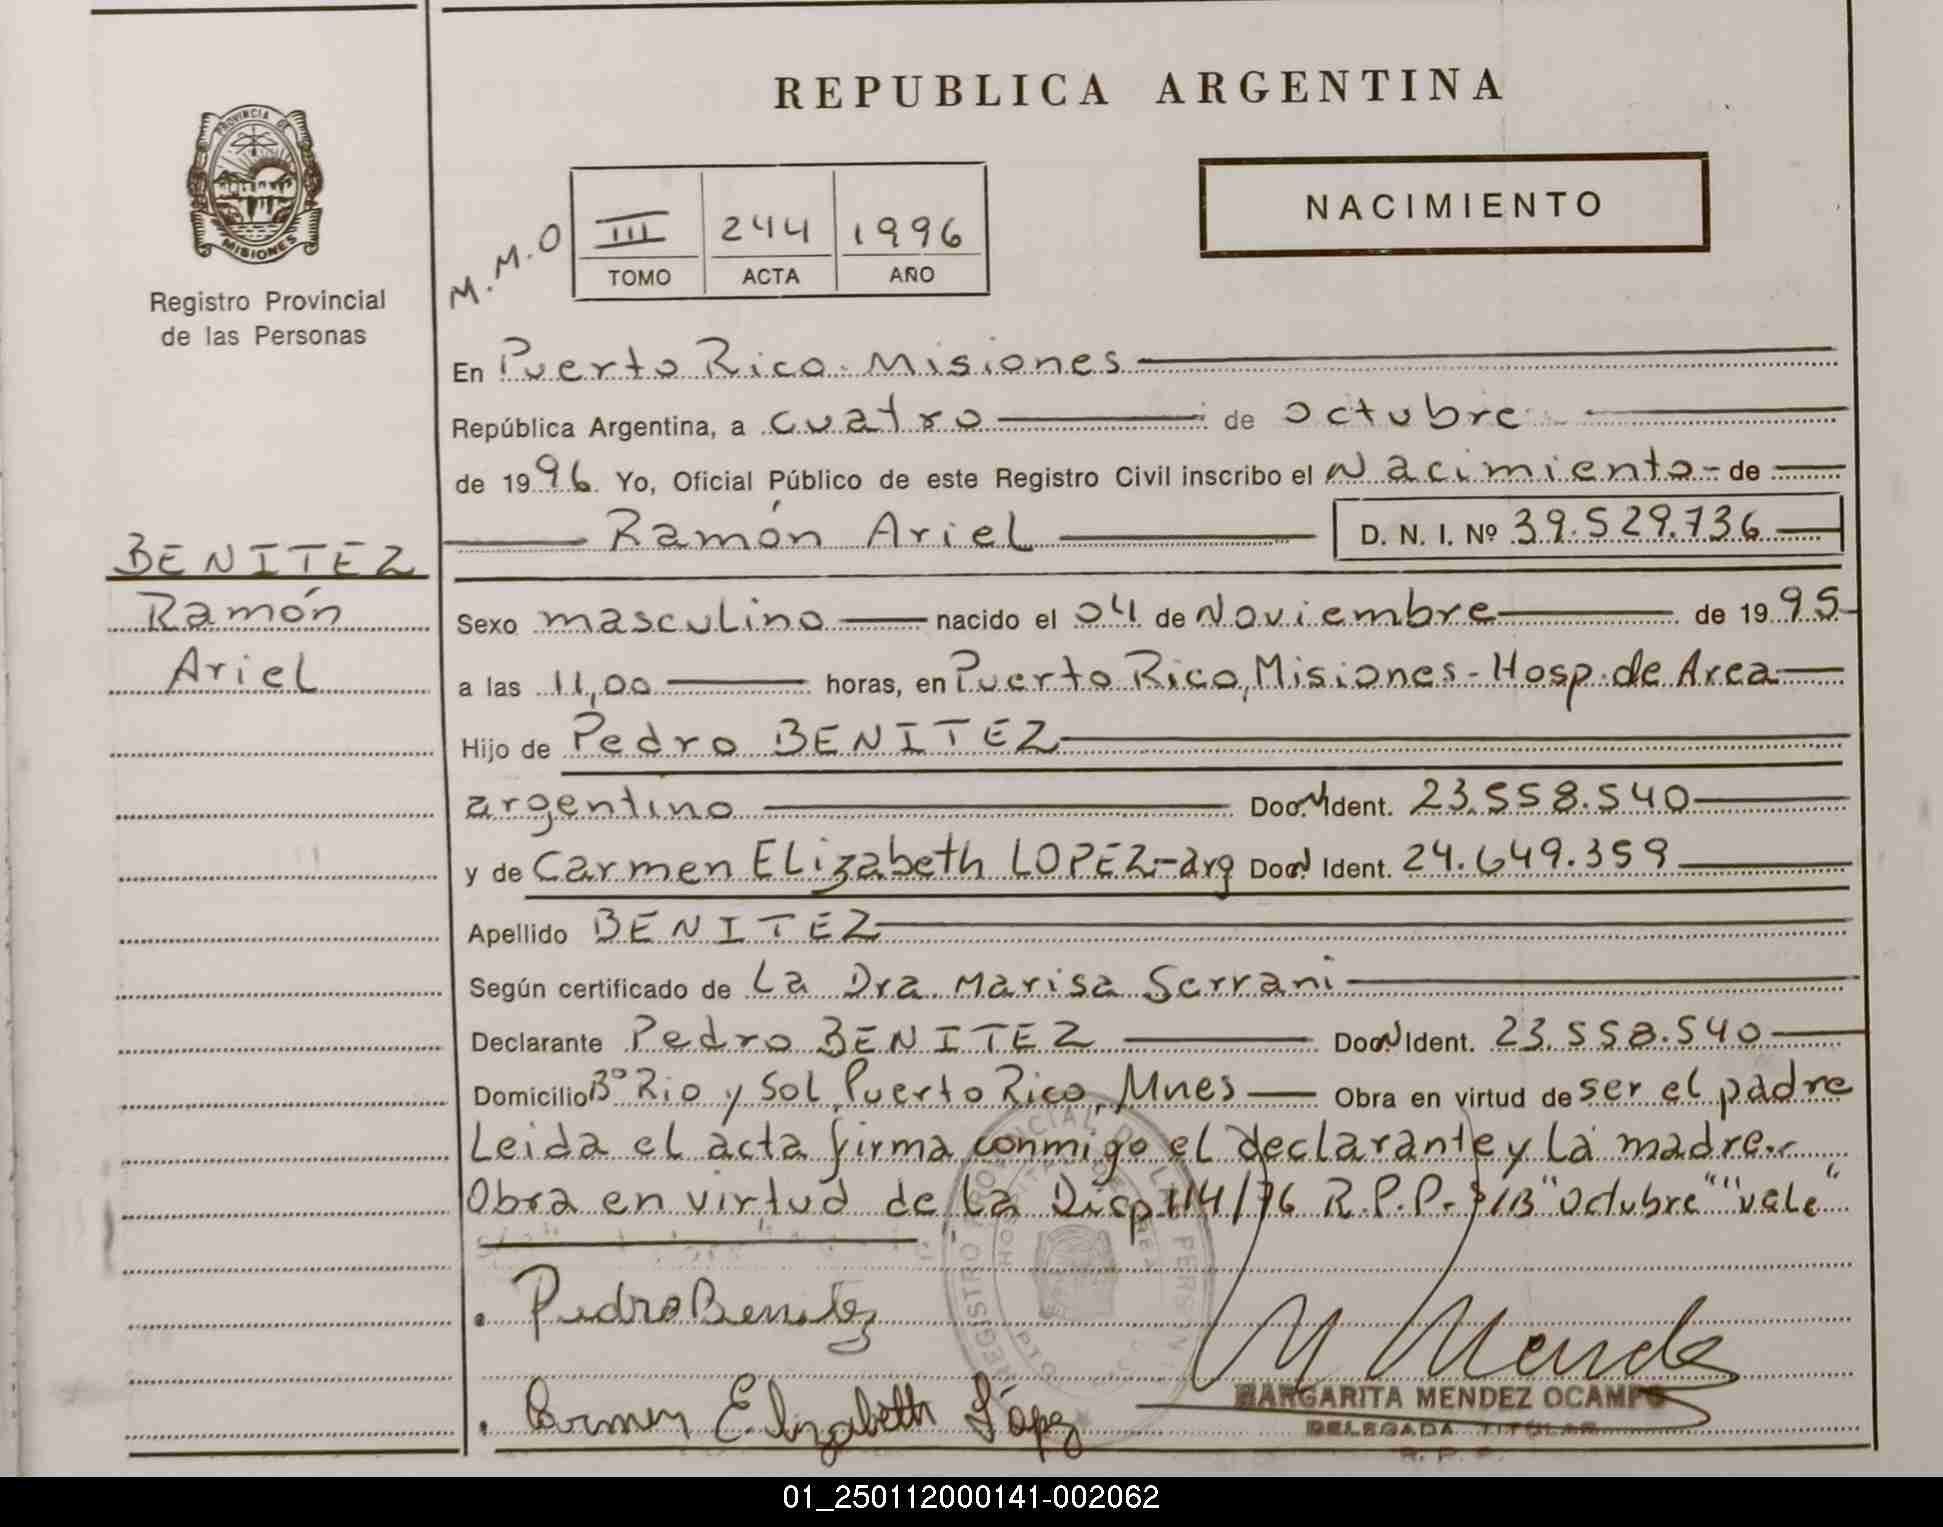 REPUBLICA ARGENTINA
PROVINCIA DE
MISIONES
Registro Provincial
de las Personas
NACIMIENTO
M.M.O
III 244 1996
TOMO ACTA AÑO
En Puerto Rico. Misiones
República Argentina, a cuatro de octubre
de 1996. Yo, Oficial Público de este Registro Civil inscribo el Nacimiento - de
Ramón Ariel D. N. I. Nº 39.529.736
BENITEZ
Ramón
Ariel
Sexo masculino nacido el 04 de Noviembre de 1995
a las 11,00 horas, en Puerto Rico, Misiones - Hosp. de Area
Hijo de Pedro BENITEZ
argentino Doc. N Ident. 23.558.540
y de Carmen ELizabeth LOPEZ-arg Doc. N Ident. 24.649.359
Apellido BENITEZ
Según certificado de La Dra. Marisa Serrani
Declarante Pedro BENITEZ Doc. N Ident. 23.558.540
Domicilio Bº Rio y Sol, Puerto Rico, Mnes Obra en virtud de ser el padre
Leida el acta firma conmigo el declarante y La madre.
Obra en virtud de La Disp 114/76 R.P.P. "Octubre" "vale"
Pedro Benitez
M Mendez
Carmen Elizabeth López
MARGARITA MENDEZ OCAMPO
DELEGADA TITULAR
R. P. P.
01_250112000141-002062